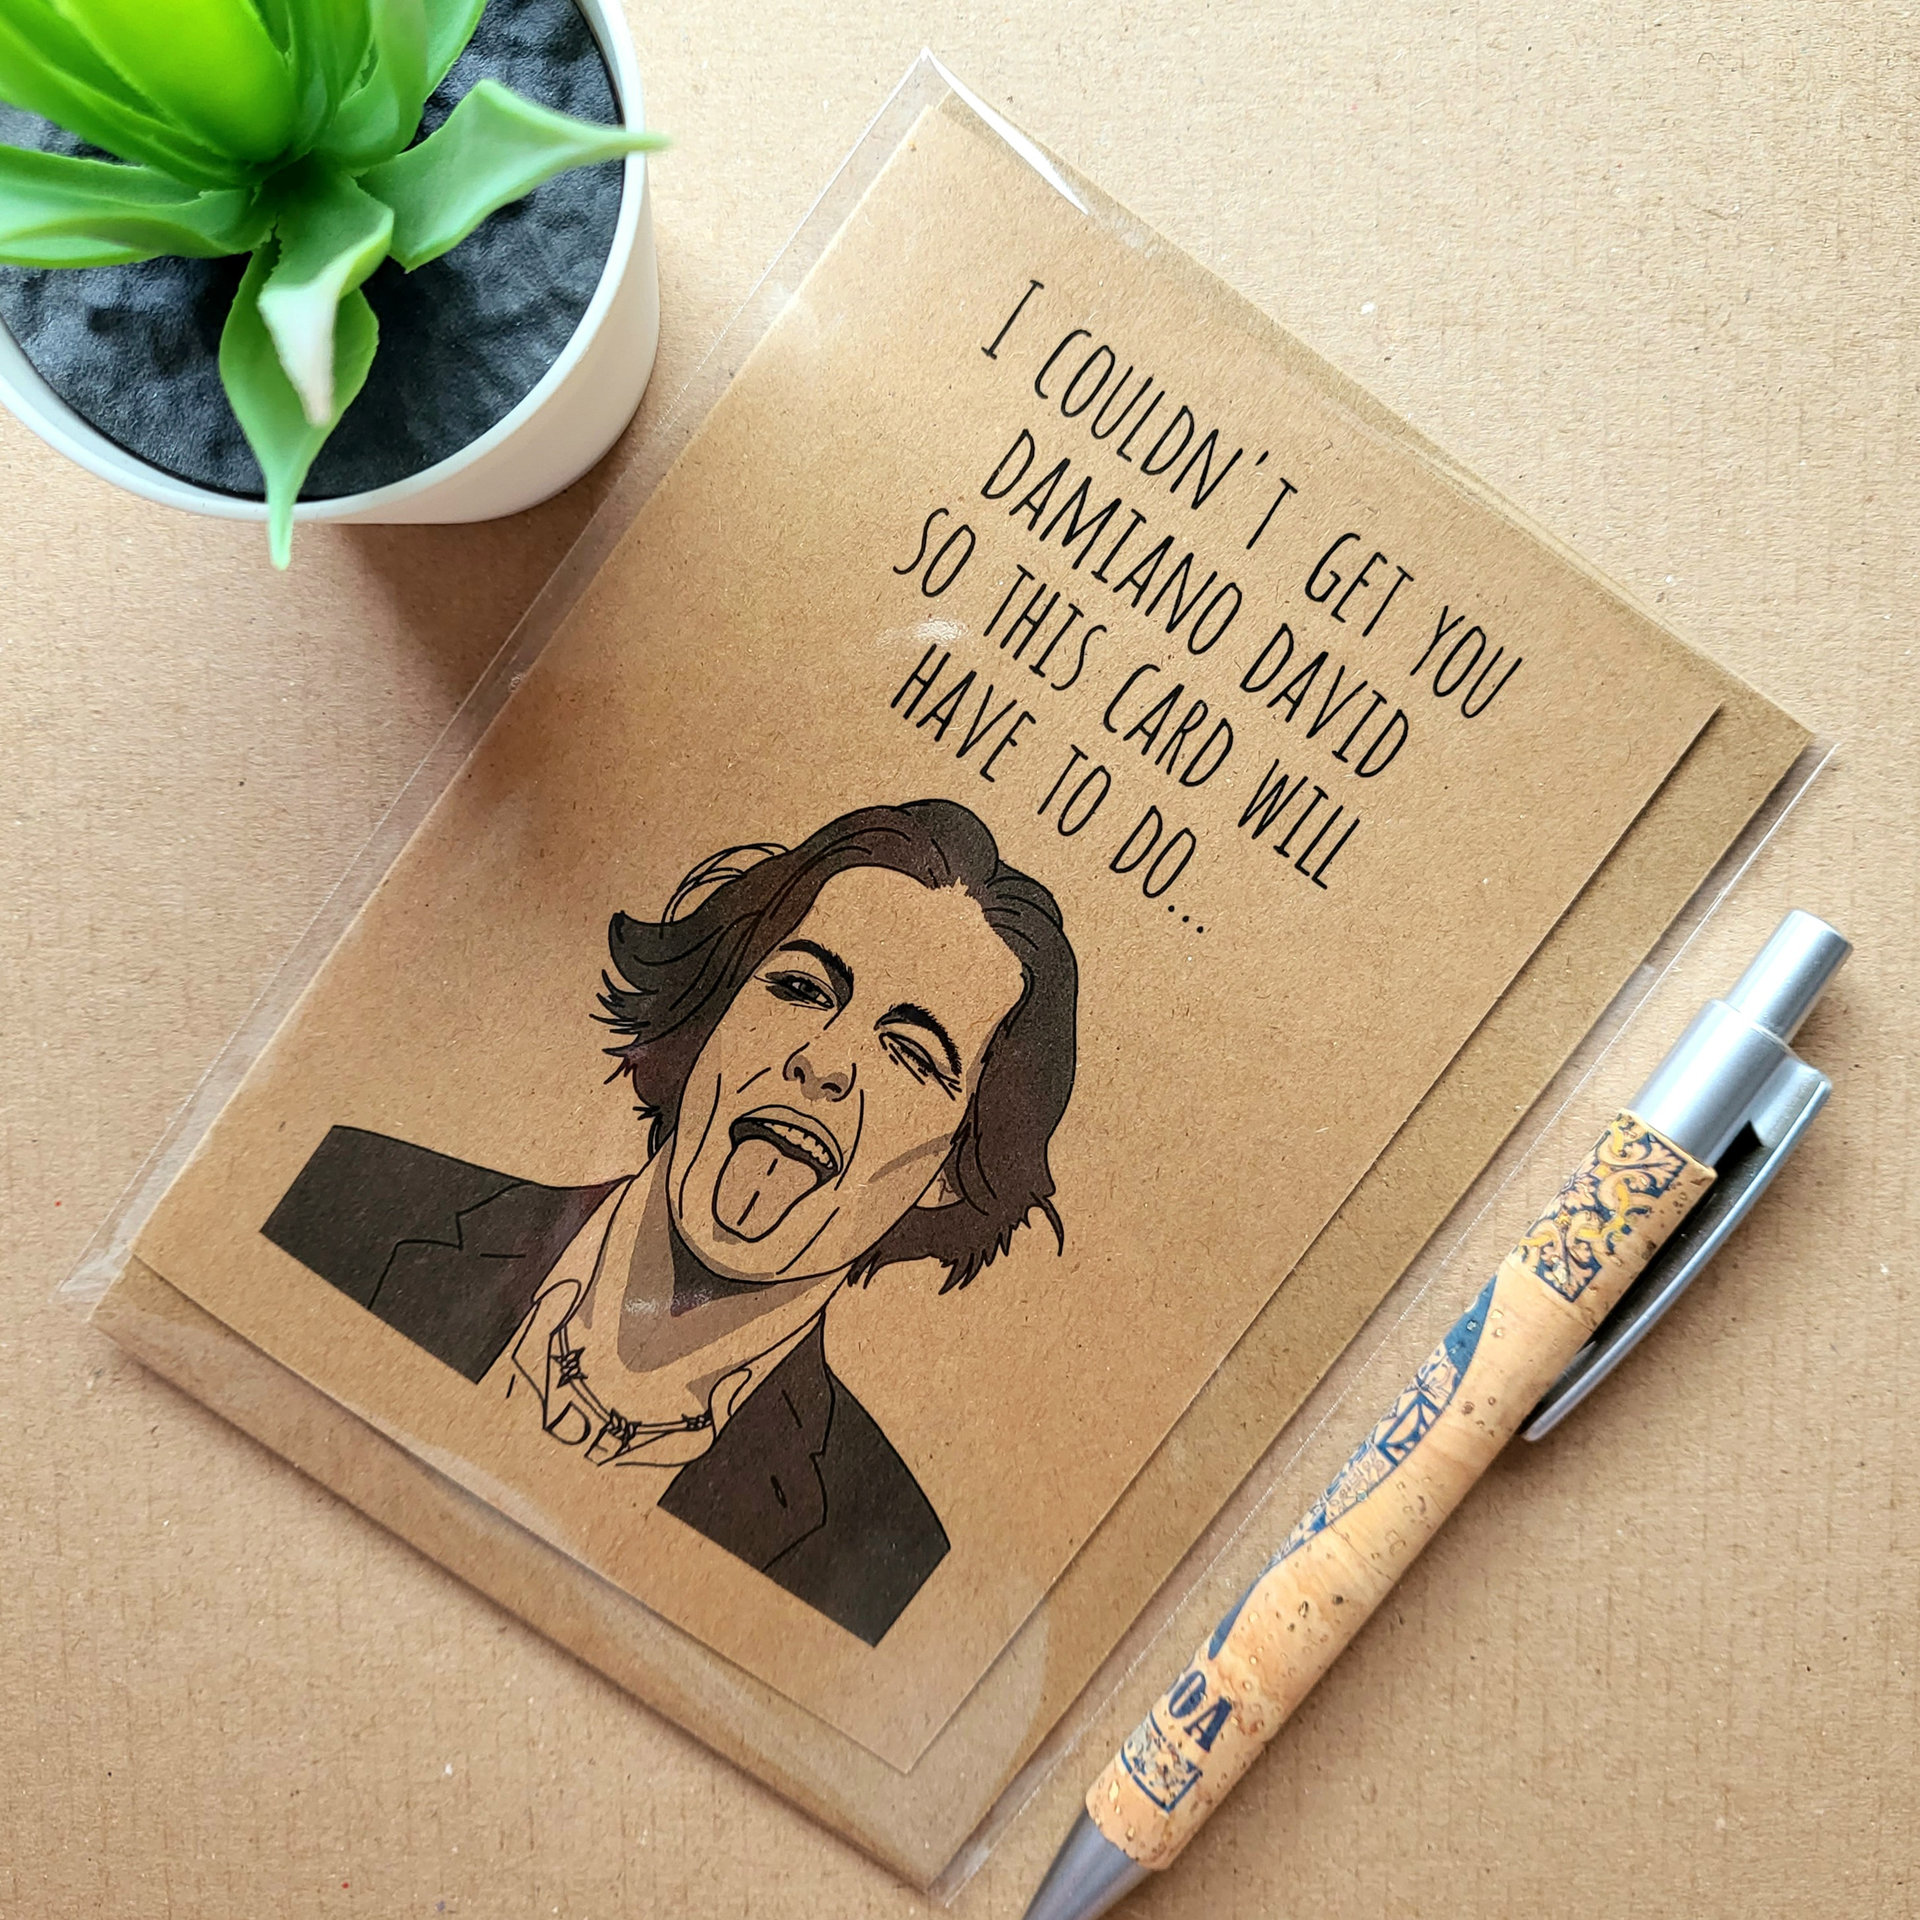 I COULDN'T GET YOU
DAMIANO DAVID
SO THIS CARD WILL
HAVE TO DO...